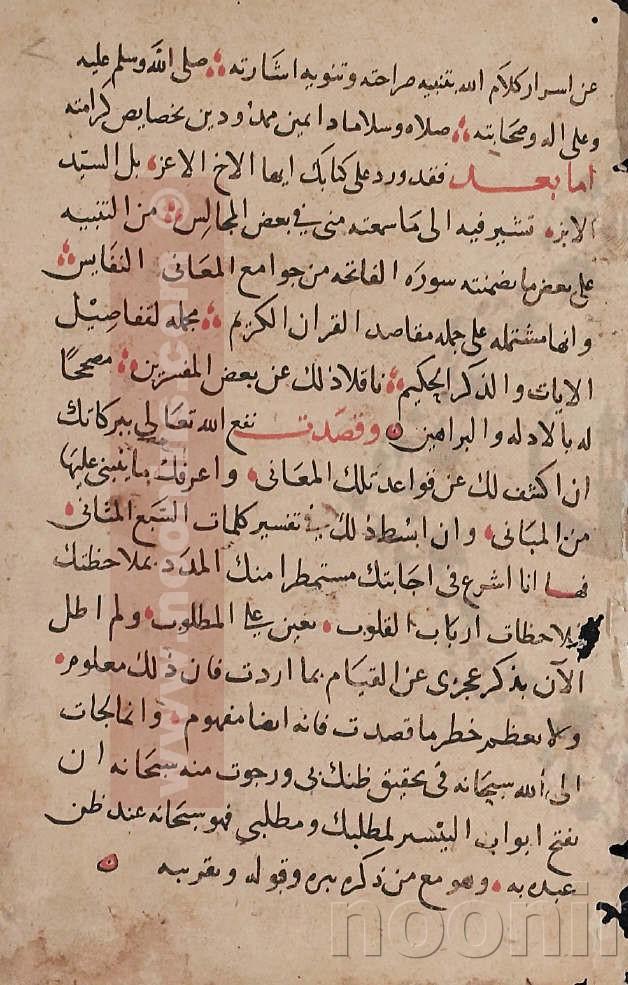 عن اسرار كلام الله بتنبيه صراحته وتنويه اشارته صلى الله وسلم عليه
وعلى اله وصحابته صلاه وسلاما دايمين ممدودين بخصايص كرامته
اما بعد فقد ورد على كتابك ايها الاخ الاعز بل السيد
الابر تشير فيه الى ما سمعته منى في بعض المجالس من التنبيه
على بعض ما تضمنته سوره الفاتحه من جوامع المعانى النفايس
وانها مشتمله على جمله مقاصد القران الكريم مجمله لتفاصيل
الايات والذكر الحكيم ناقلا ذلك عن بعض المفسرين مصححا
له بالادله والبراهين وقصدت نفع الله تعالى ببركاتك
ان اكشف لك عن قواعد تلك المعانى واعرفك بما ينبنى عليها
من المبانى وان ابسط ذلك في تفسير كلمات السبع المثانى
فها انا اشرع فى اجابتك مستمطرا منك المدد بملاحظتك
فملاحظات ارباب القلوب تعين على المطلوب ولم اطل
الآن بذكر عجزى عن القيام بما اردت فان ذلك معلوم
ولا بعظم خطر ما قصدت فانه ايضا مفهوم وانما لجات
الى الله سبحانه فى تحقيق ظنك بى ورجوت منه سبحانه ان
يفتح ابواب التيسير لمطلبك ومطلبي فهو سبحانه عند ظن
عبده به وهو مع من ذكره ببره وقوله وتقريبه
www.noonins.com
noonin